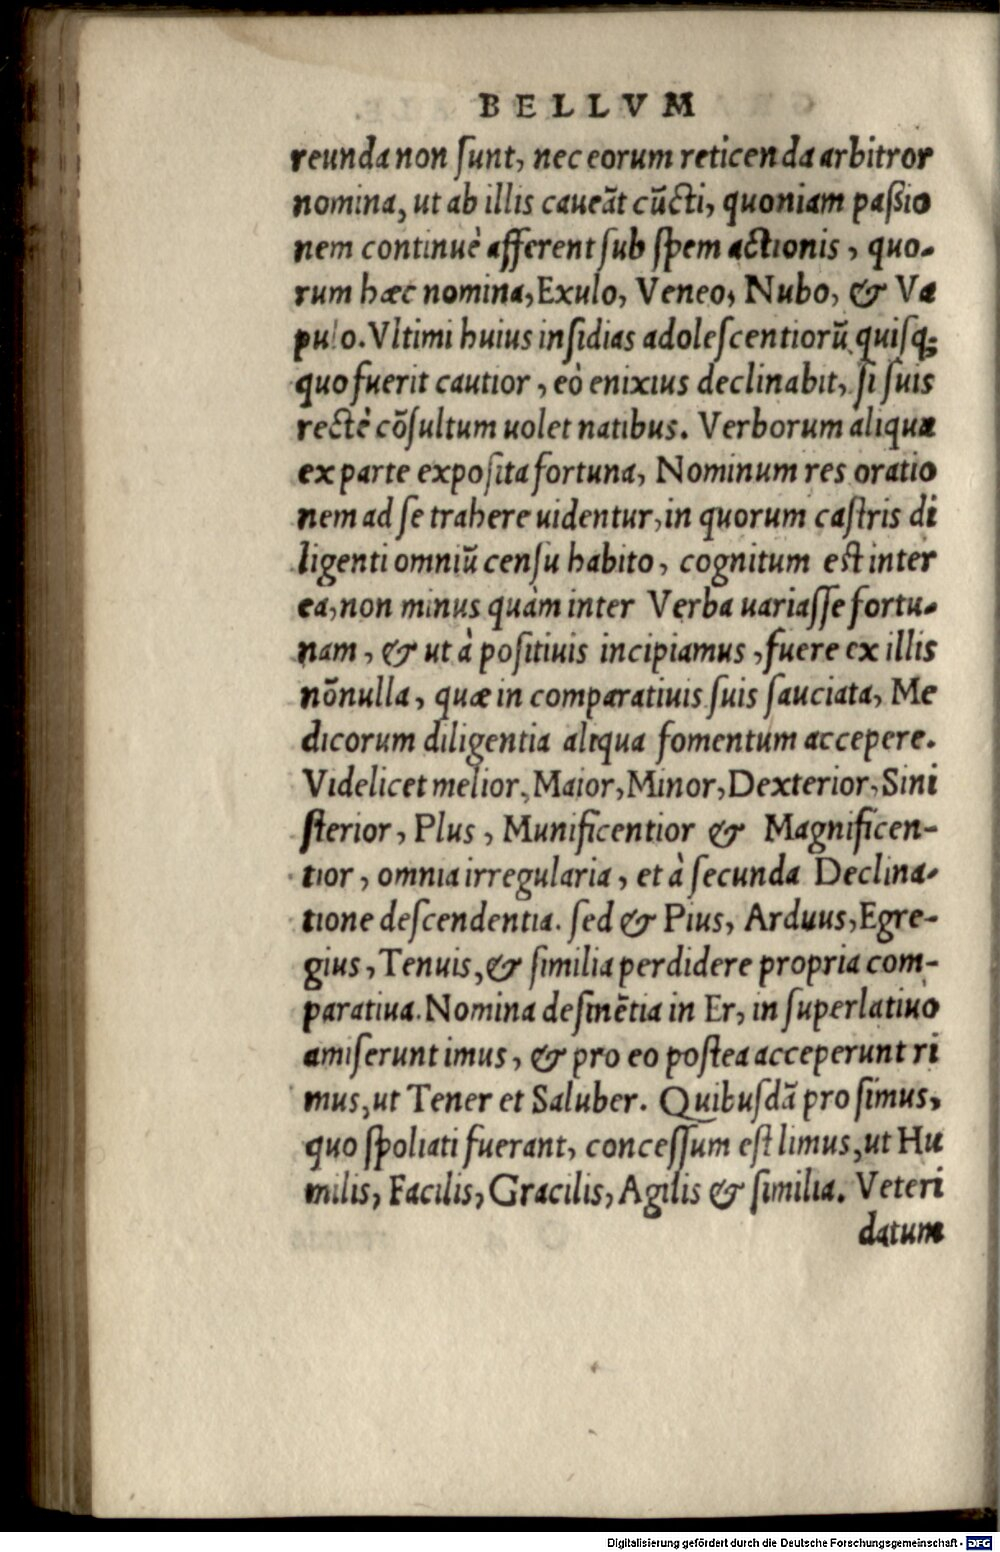 BELLVM
reunda non ſunt, nec eorum reticenda arbitror
nomina, ut ab illis caueāt cūcti, quoniam paßio
nem continuè afferent ſub ſpem actionis, quo-
rum hæc nomina, Exulo, Veneo, Nubo, & Va
pulo. Vltimi huius inſidias adoleſcentiorū quiſq;
quo fuerit cautior, eò enixius declinabit, ſi ſuis
rectè cōſultum uolet natibus. Verborum aliqua
ex parte expoſita fortuna, Nominum res oratio
nem ad ſe trahere uidentur, in quorum caſtris di
ligenti omniū cenſu habito, cognitum eſt inter
ea, non minus quàm inter Verba uariaſſe fortu-
nam, & ut à poſitiuis incipiamus, fuere ex illis
nōnulla, quæ in comparatiuis ſuis ſauciata, Me
dicorum diligentia aliqua fomentum accepere.
Videlicet melior, Maior, Minor, Dexterior, Sini
ſterior, Plus, Munificentior & Magnificen-
tior, omnia irregularia, et à ſecunda Declina-
tione deſcendentia. ſed & Pius, Arduus, Egre-
gius, Tenuis, & ſimilia perdidere propria com-
paratiua. Nomina deſinētia in Er, in ſuperlatiuo
amiſerunt imus, & pro eo poſtea acceperunt ri
mus, ut Tener et Saluber. Quibuſdā pro ſimus,
quo ſpoliati fuerant, conceſſum eſt limus, ut Hu
milis, Facilis, Gracilis, Agilis & ſimilia. Veteri
datum
Digitalisierung gefördert durch die Deutsche Forschungsgemeinschaft - DFG